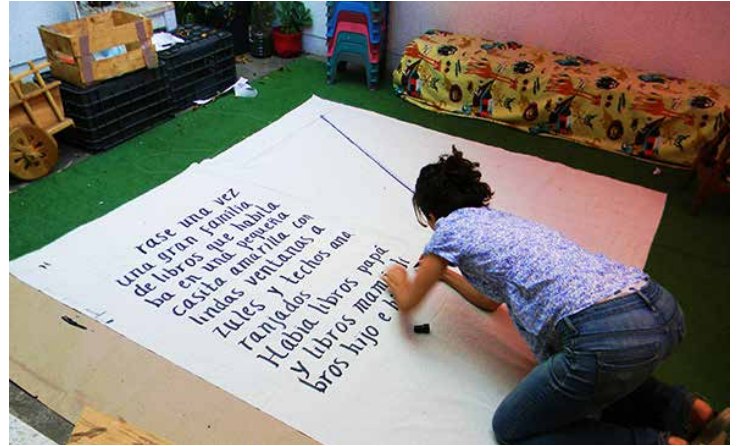 rase una vez
una gran familia
de libros que habita
ba en una pequeña
casita amarilla con
lindas ventanas a
zules y techos ana
ranjados
Habia libros papá
y libros mamá li
bros hijo e